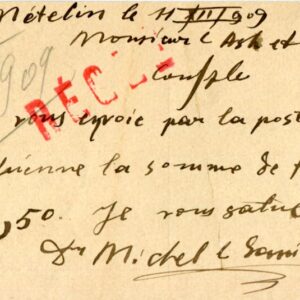 Mételin le 11 XII 909
Monsieur l. Ask et
Couffle
909
RÉGLÉ
vous envoie par la post
ienne la somme de f
,50. Je vous salue
Dr Michel